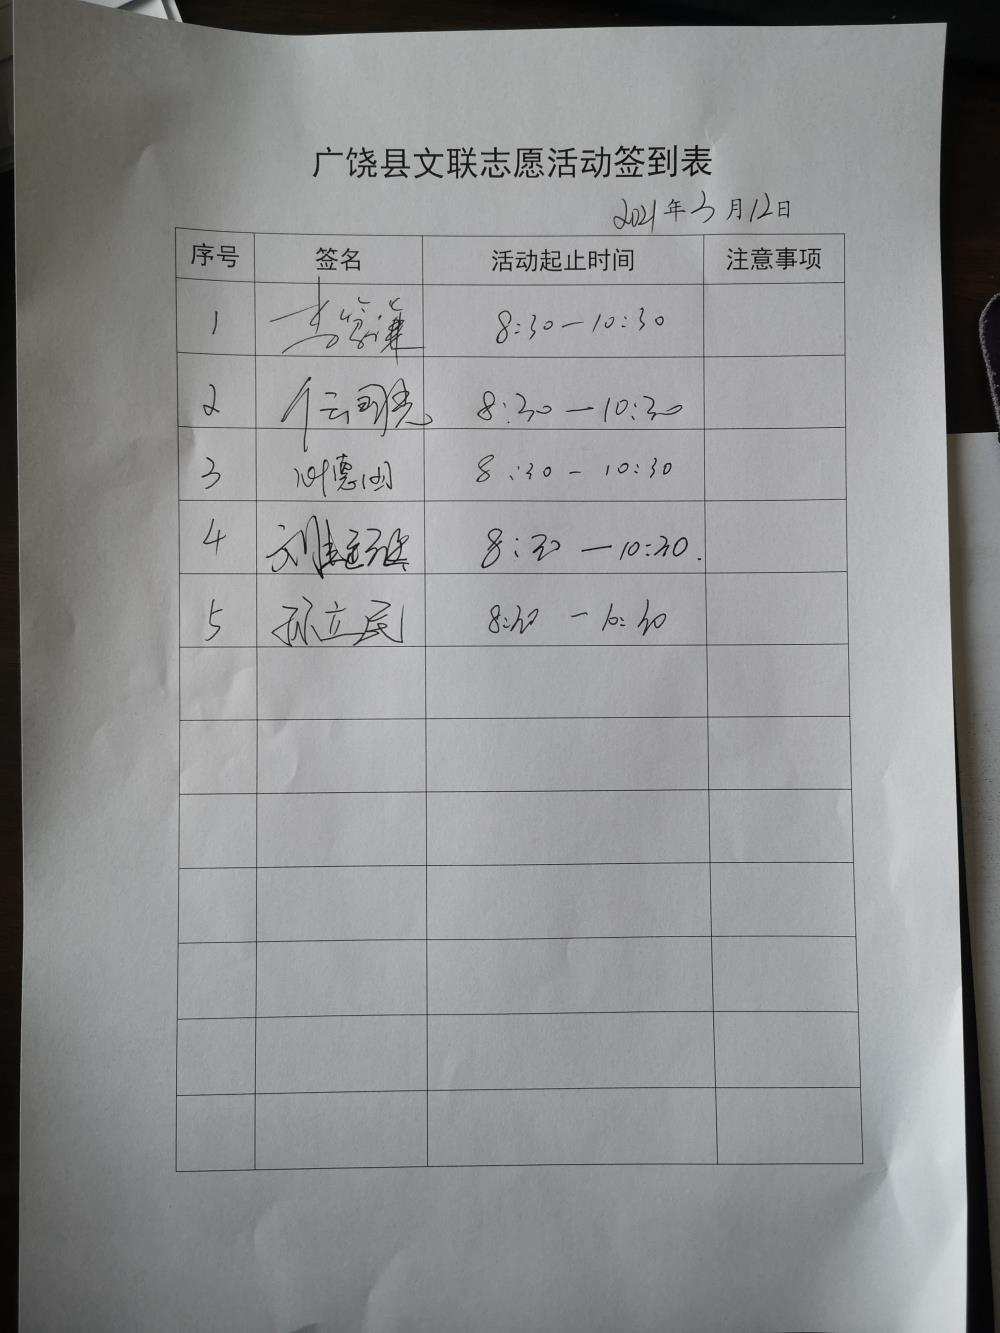 广饶县文联志愿活动签到表
2021年3月12日
序号 签名 活动起止时间 注意事项
1 8:30—10:30
2 8:30—10:30
3 8:30-10:30
4 8:30—10:30.
5 孙立民 8:30-10:30